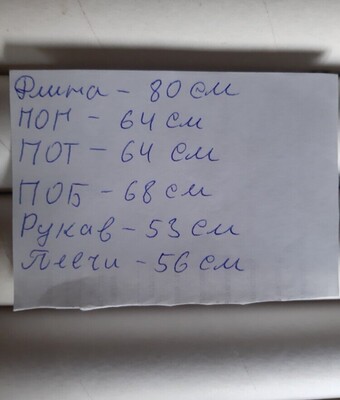 Длина - 80 см
ПОП - 64 см
ПОТ - 64 см
ПОБ - 68 см
Рукав - 53 см
Плечи - 56 см